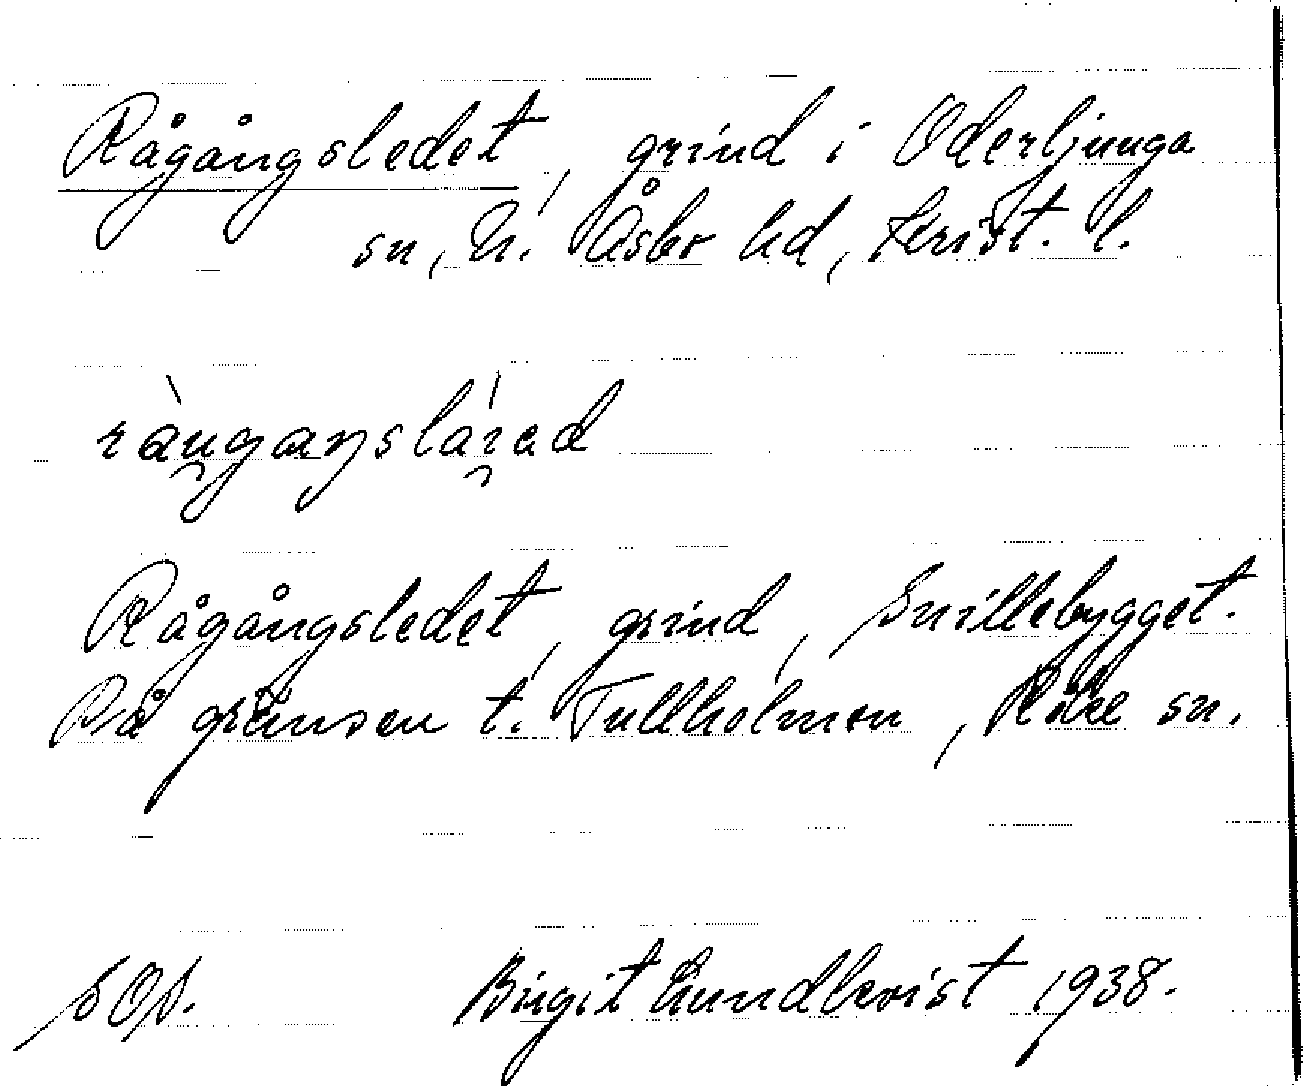 Rågångsledet, grind i Oderljunga
sn, N. Åsbo hd, Krist. l.
Rågångsledet, grind, Snillebygget.
På gränsen t. Tullholmen, Röke sn.
Birgit Lundkvist 1938.